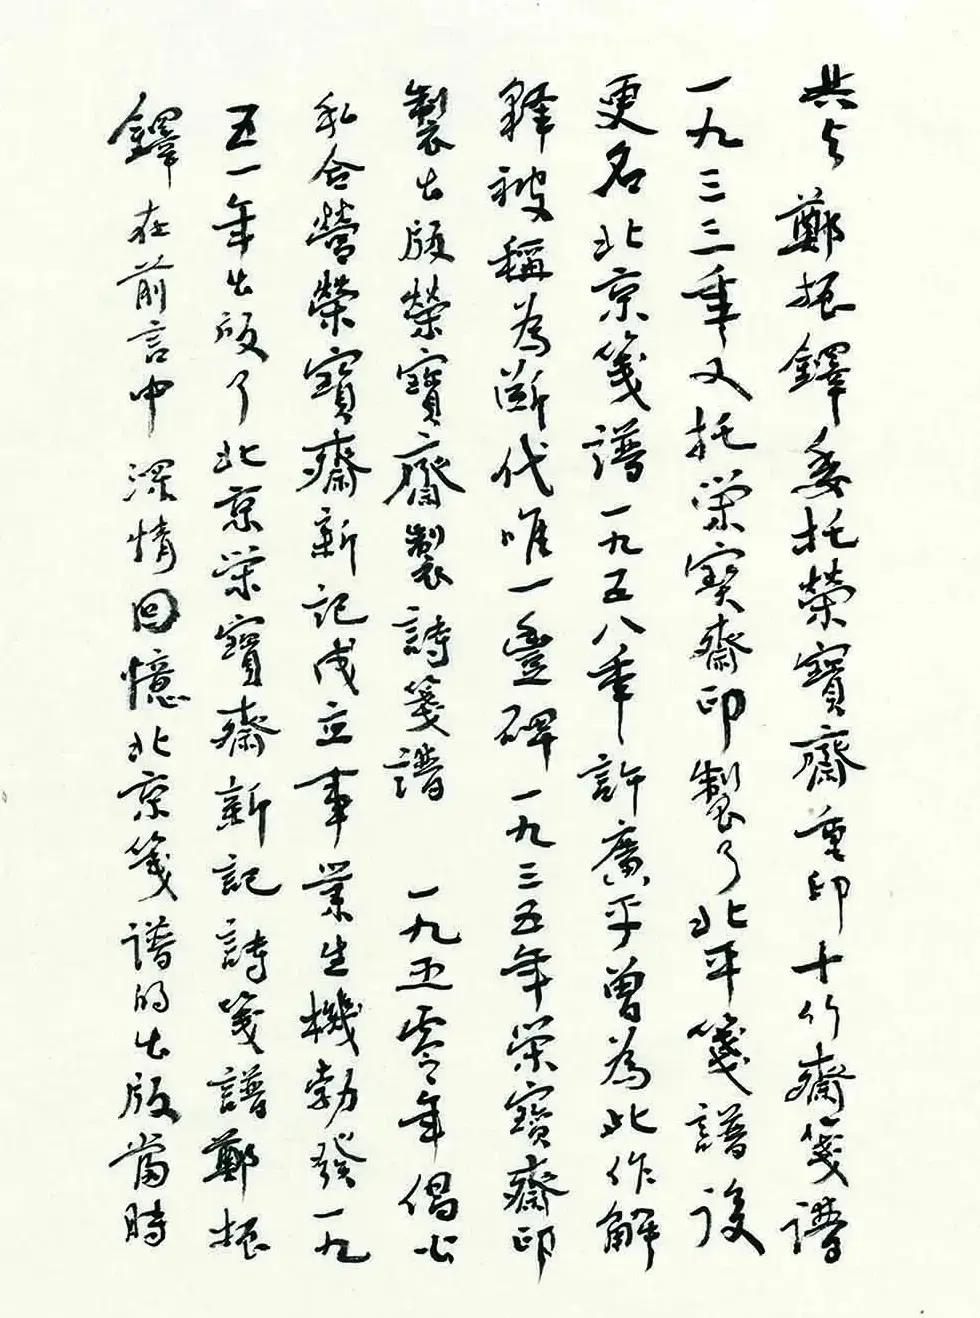 共与鄭振鐸委托榮寶齋重印十竹齋箋譜
一九三三年又托荣宝齋印製了北平箋譜後
更名北京箋譜一九五八年許廣平曾為此作解
释被稱為斷代唯一豐碑一九三五年荣寶齋印
製出版榮寶齋製詩箋譜 一九五零年偈公
私合營榮寶齋新記成立事業生機勃發一九
五一年出版了北京荣寶齋新記詩箋譜鄭振
鐸在前言中深情回憶北京箋譜的出版當時